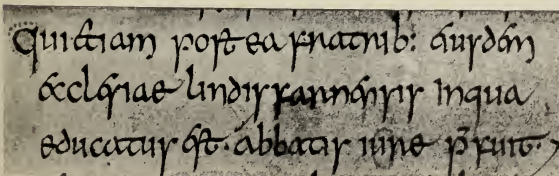 Qui etiam postea fratrib: eiusdem
ecclesiae lindisfarnensis inqua
educatus est. abbatis iure p̄fuit.